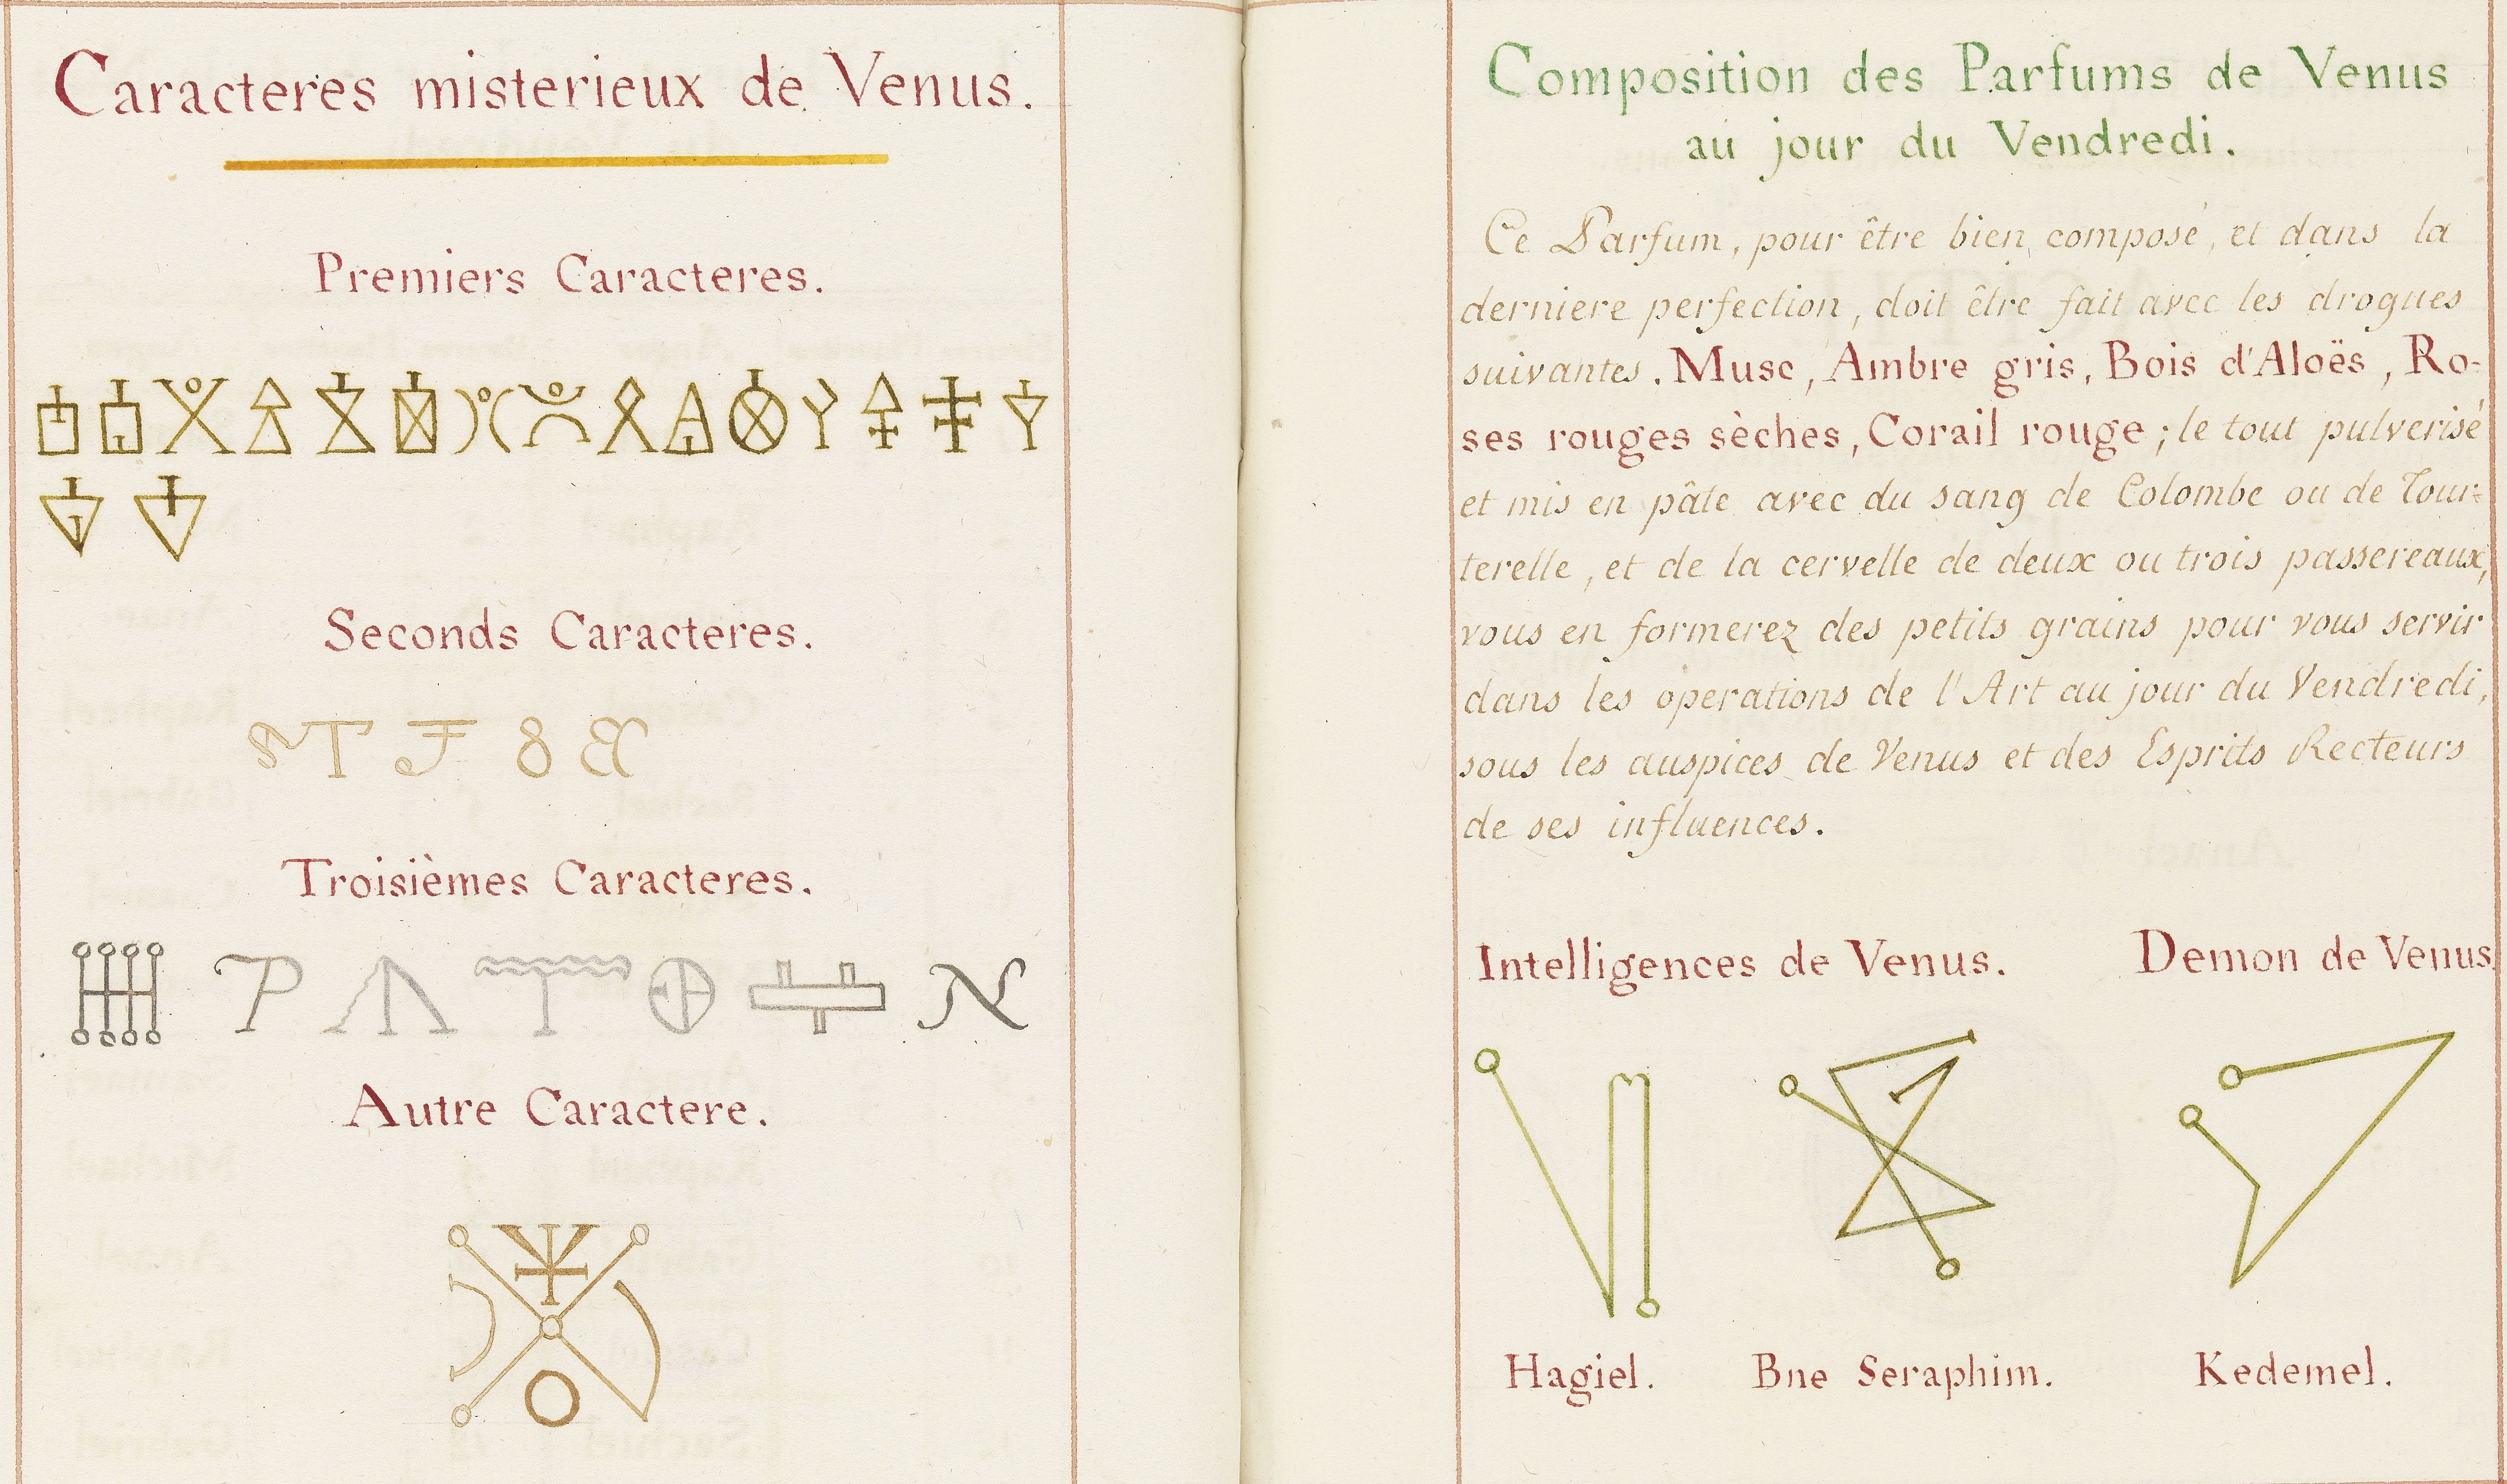 Caracteres misterieux de Venus.
Premiers Caracteres.
Seconds Caracteres.
Troisièmes Caracteres.
Autre Caractere.
Composition des Parfums de Venus
au jour du Vendredi.
Ce Parfum, pour être bien composé, et dans la
derniere perfection, doit être fait avec les drogues
suivantes. Musc, Ambre gris, Bois d'Aloës, Ro-
ses rouges sèches, Corail rouge; le tout pulverisé
et mis en pâte avec du sang de Colombe ou de Tour-
terelle, et de la cervelle de deux ou trois passereaux,
vous en formerez des petits grains pour vous servir
dans les operations de l'Art au jour du Vendredi,
sous les auspices de Venus et des Esprits Recteurs
de ses influences.
Intelligences de Venus. Demon de Venus.
Hagiel. Bne Seraphim. Kedemel.